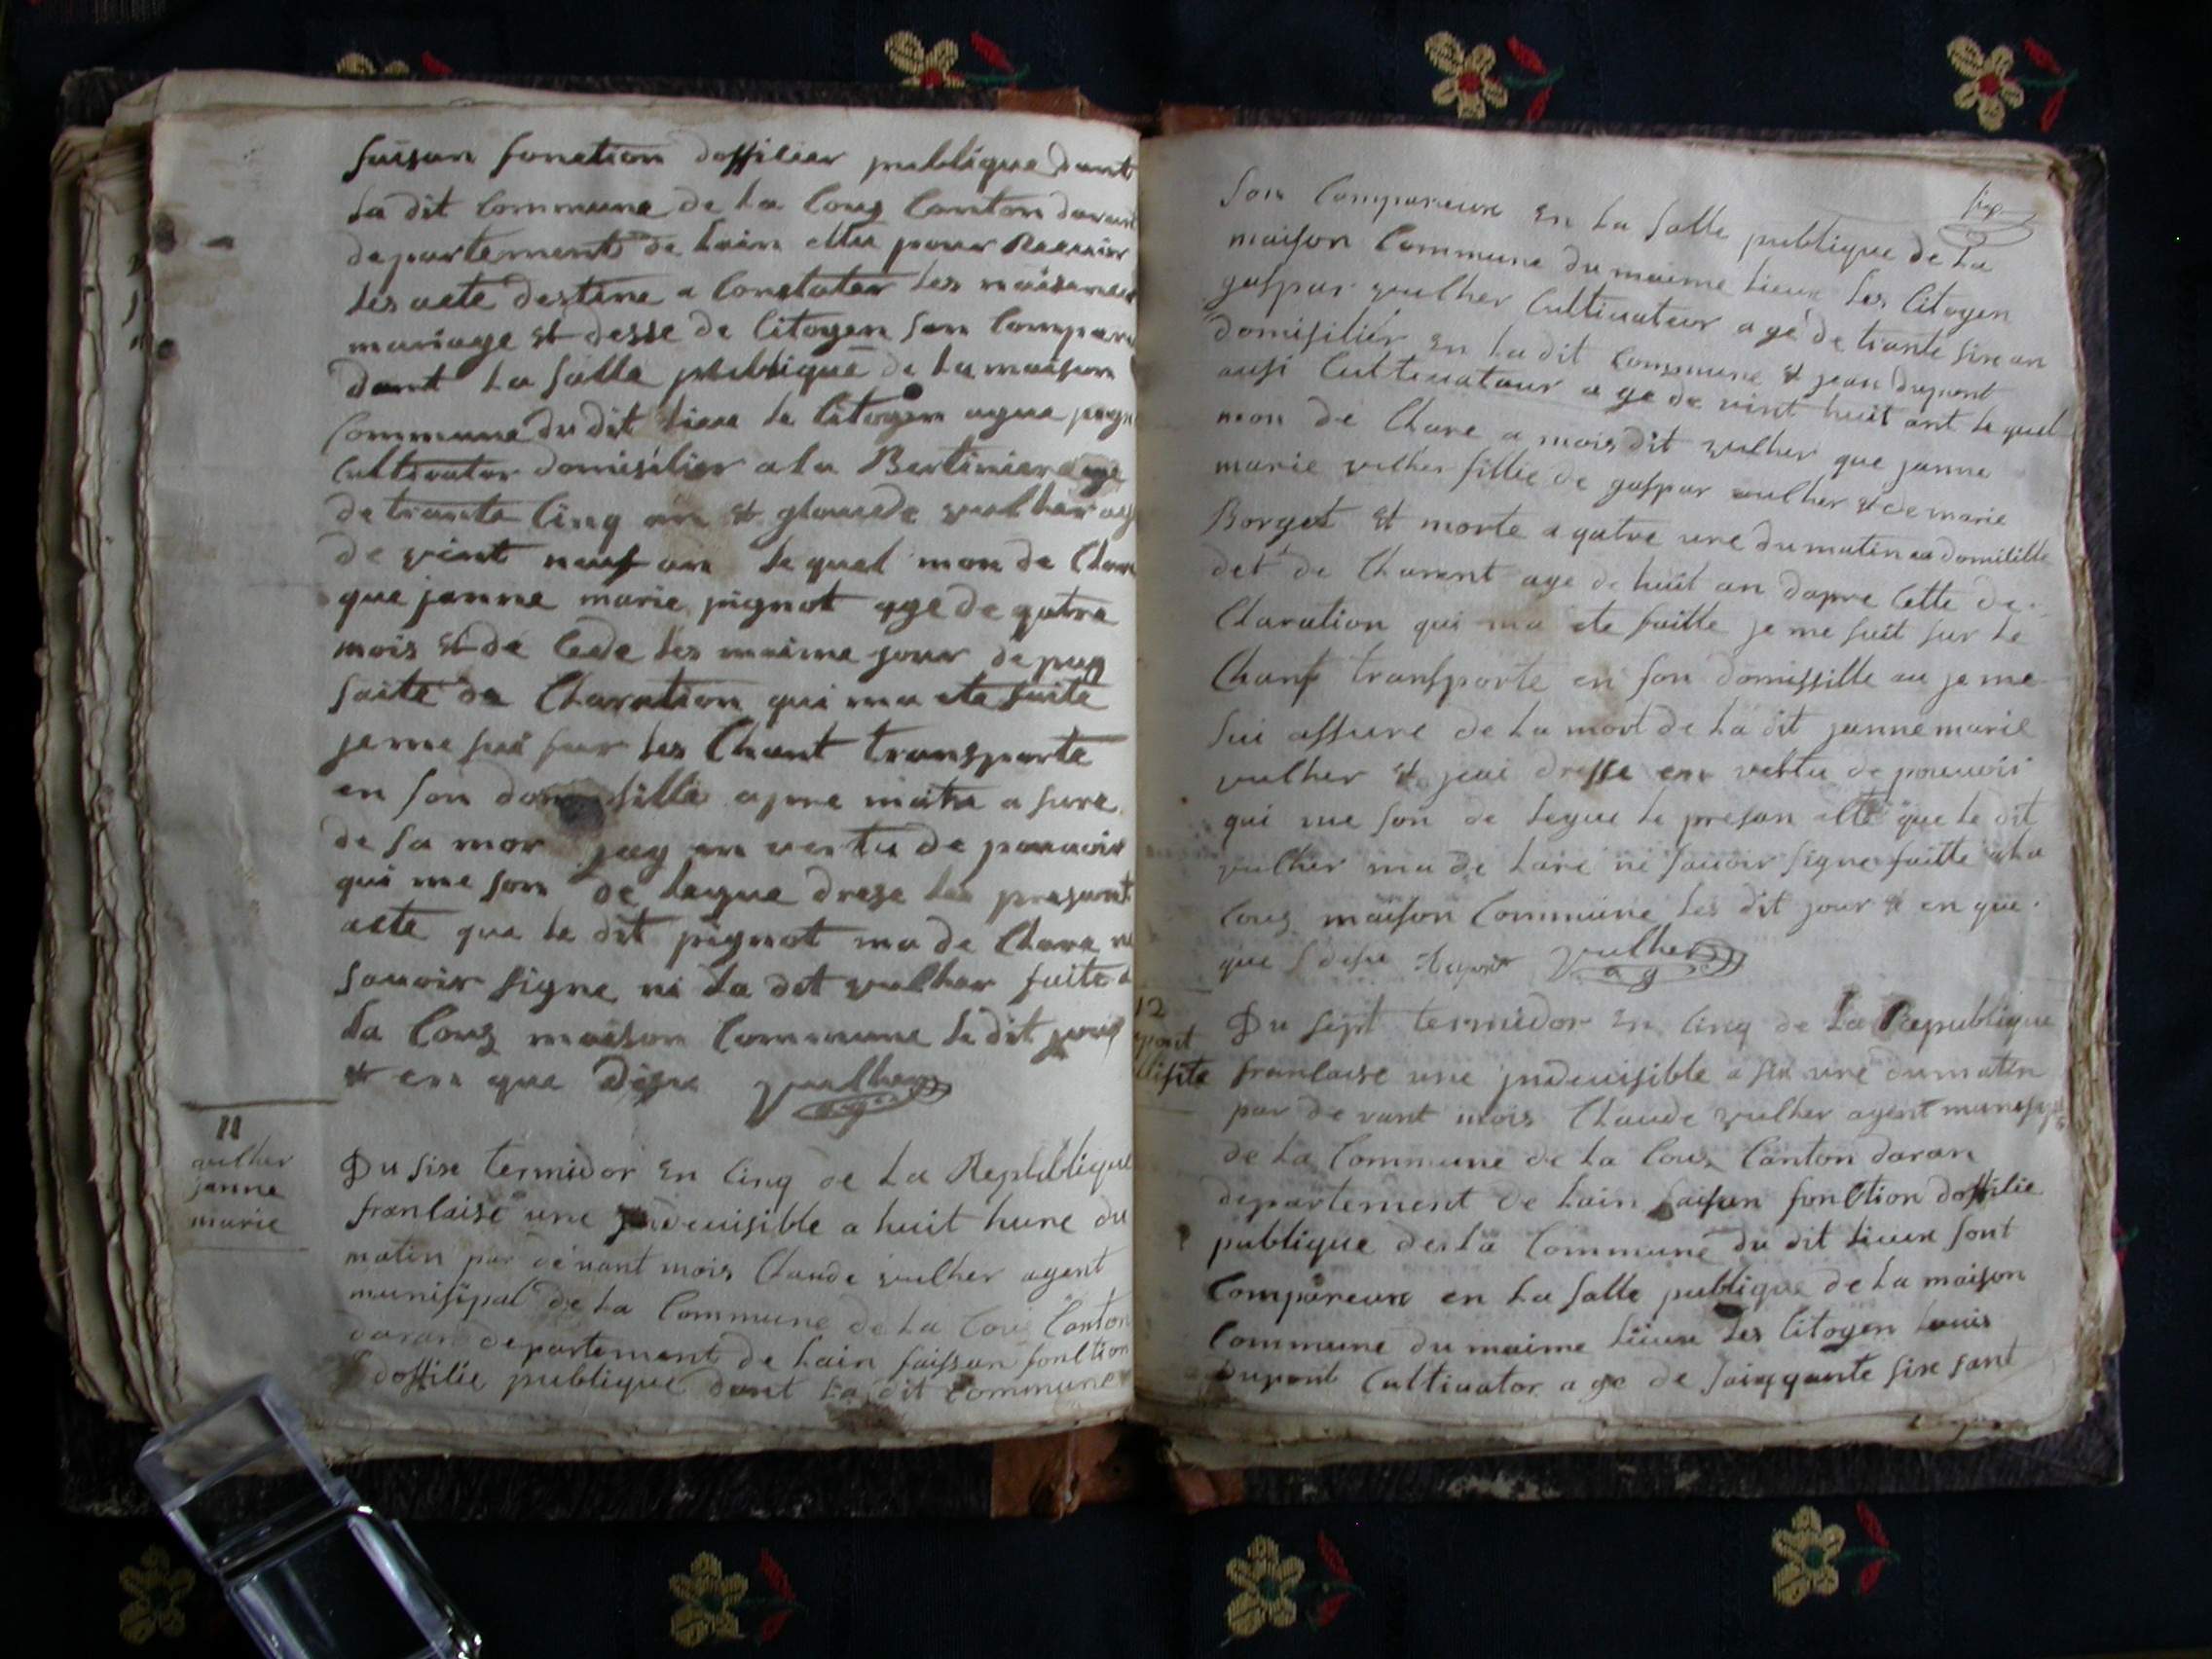 faisan fonction doffisier publique dant
La dit Commune de La Coux Canton daran
departement de Lain ellu pour Recevoir
les acte destine a Constater les naisance
mariage et desse de Citoyen son Compar
dant La salle publique de La maison
Commune du dit Lieu le Citoyen pign
Cultivator domisilier a La Bertinier age
de trante cinq an et glaude vulher ag
de vint neuf an lequel mon de Clare
que janne marie pignot age de qatre
mois et de cede les maime jour depuy
faite de Claration qui ma ete faite
je me sui sur les Chant transporte
en son domisille apre
de sa mor jay en vertu de pouvoir
qui me son de legue drese les presant
acte que le dit pignot ma de Clare ne
savoir signe ni La dit vulher faite a
La Coux maison Commune le dit jour
et en que desu vulher
ag
11
vulher
janne
marie
Du sixe termidor en cinq de La Republique
francaise une indeuisible a huit hure du
matin par devant mois Claude vulher agent
munisipal de La Commune de La Coux Canton
daran departement de Lain faissan fonction
doffilie publique dant La dit Commune
six
son Compareux en La salle publique de La
maison Commune du maime Lieux les Citoyen
gaspar vulher Cultivateur age de trante sixe an
domisilier en La dit Commune et jean dupont
ausi Cultivatour age de vint huit ant lequel
mon de Clare a mois dit vulher que janne
marie vulher fillie de gaspar vulher et de marie
Borget et morte a qatre ure du matin domisille
det de Charent age de huit an dapre Cette de
Claration qui ma ete faitte je me suit sur le
Chant transporte en son domissille au je me
sui assure de La mort de La dit janne marie
vulher et jeai dresse en vertu de pouvoir
qui me son de legue le presan alte que le dit
vulher ma de Lare ni savoir signe faitte a La
Coux maison Commune les dit jour et en que
que desu vulher
ag
12
pont
Du sept termidor en cinq de La Republique
francaise une indeuisible a six ure du matin
par de vant mois Claude vulher agent
de La Commune de La Coux Canton daran
departement de Lain faisan fonction doffilie
publique de La Commune du dit Lieux sont
Compareux en La salle publique de La maison
Commune du maime Lieux les Citoyen Louis
Dupont Cultivator age de sainqante sixe sant